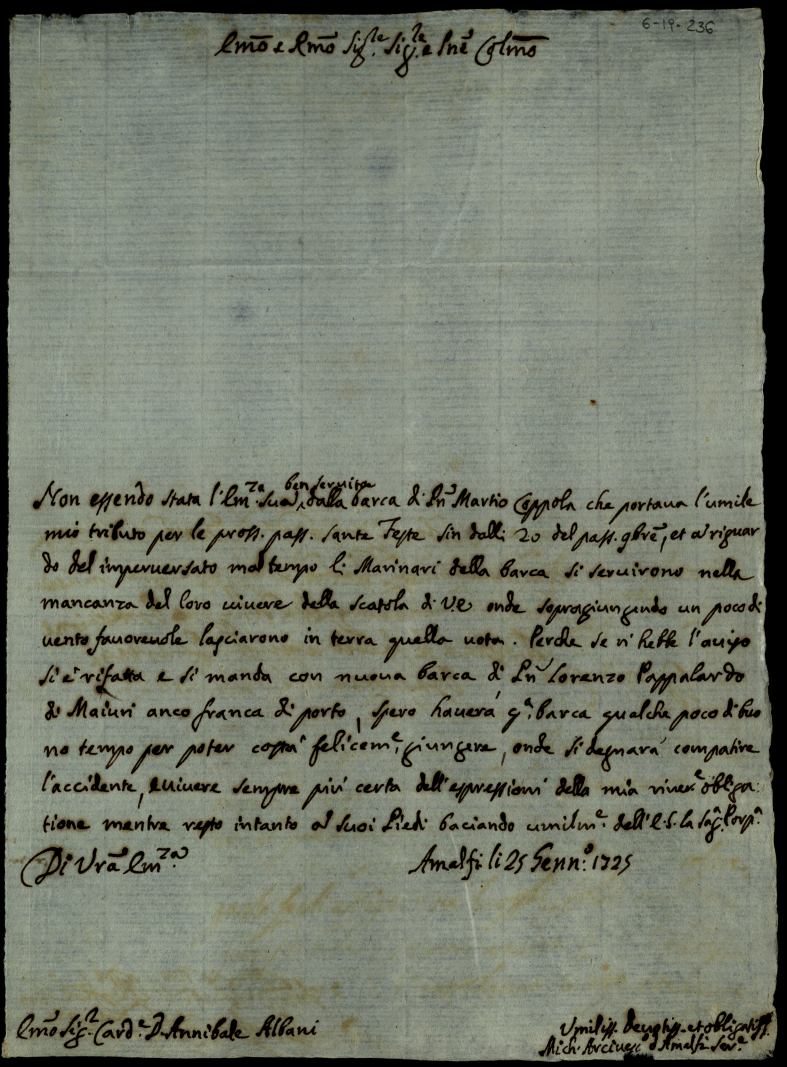 6-19-236
Em̃o e Rmõ Sig.re Sig.re e Pnẽ Colmõ
Non essendo stata l'Em.za Sua ben servita dalla barca di Pñ Martio Coppola che portava l'umile
mio tributo per le pross. pass. sante Feste sin dalli 20 del pass. 9brẽ, et a' riguar
do del imperversato mal tempo li Marinari della barca si servirono nella
mancanza del loro vivere della scatola di V.E. onde sopragiungendo un poco di
vento favorevole lasciarono in terra quella vota. Perche se n'hebbe l'aviso
si e' rifatta e si manda con nuova barca di Pñ Lorenzo Pappalardo
di Maiuri anco franca di porto, spero haverá q.a barca qualche poco di buo
no tempo per poter costa' felicem.e giungere, onde si degnará compatire
l'accidente, e vivere sempre piú certa dell'espressioni della mia river.e obliga
tione mentre resto intanto a' suoi Piedi baciando umilm.e dell'E.S. la Sag. Porp.a
Di Vrã Em.za Amalfi li 25 Genn.o 1725
Em̃o Sig.r Card.e D. Annibale Albani
Umiliss. devotiss. et obligatiss.
Mich. Arcivesc. d'Amalfi Ser.e